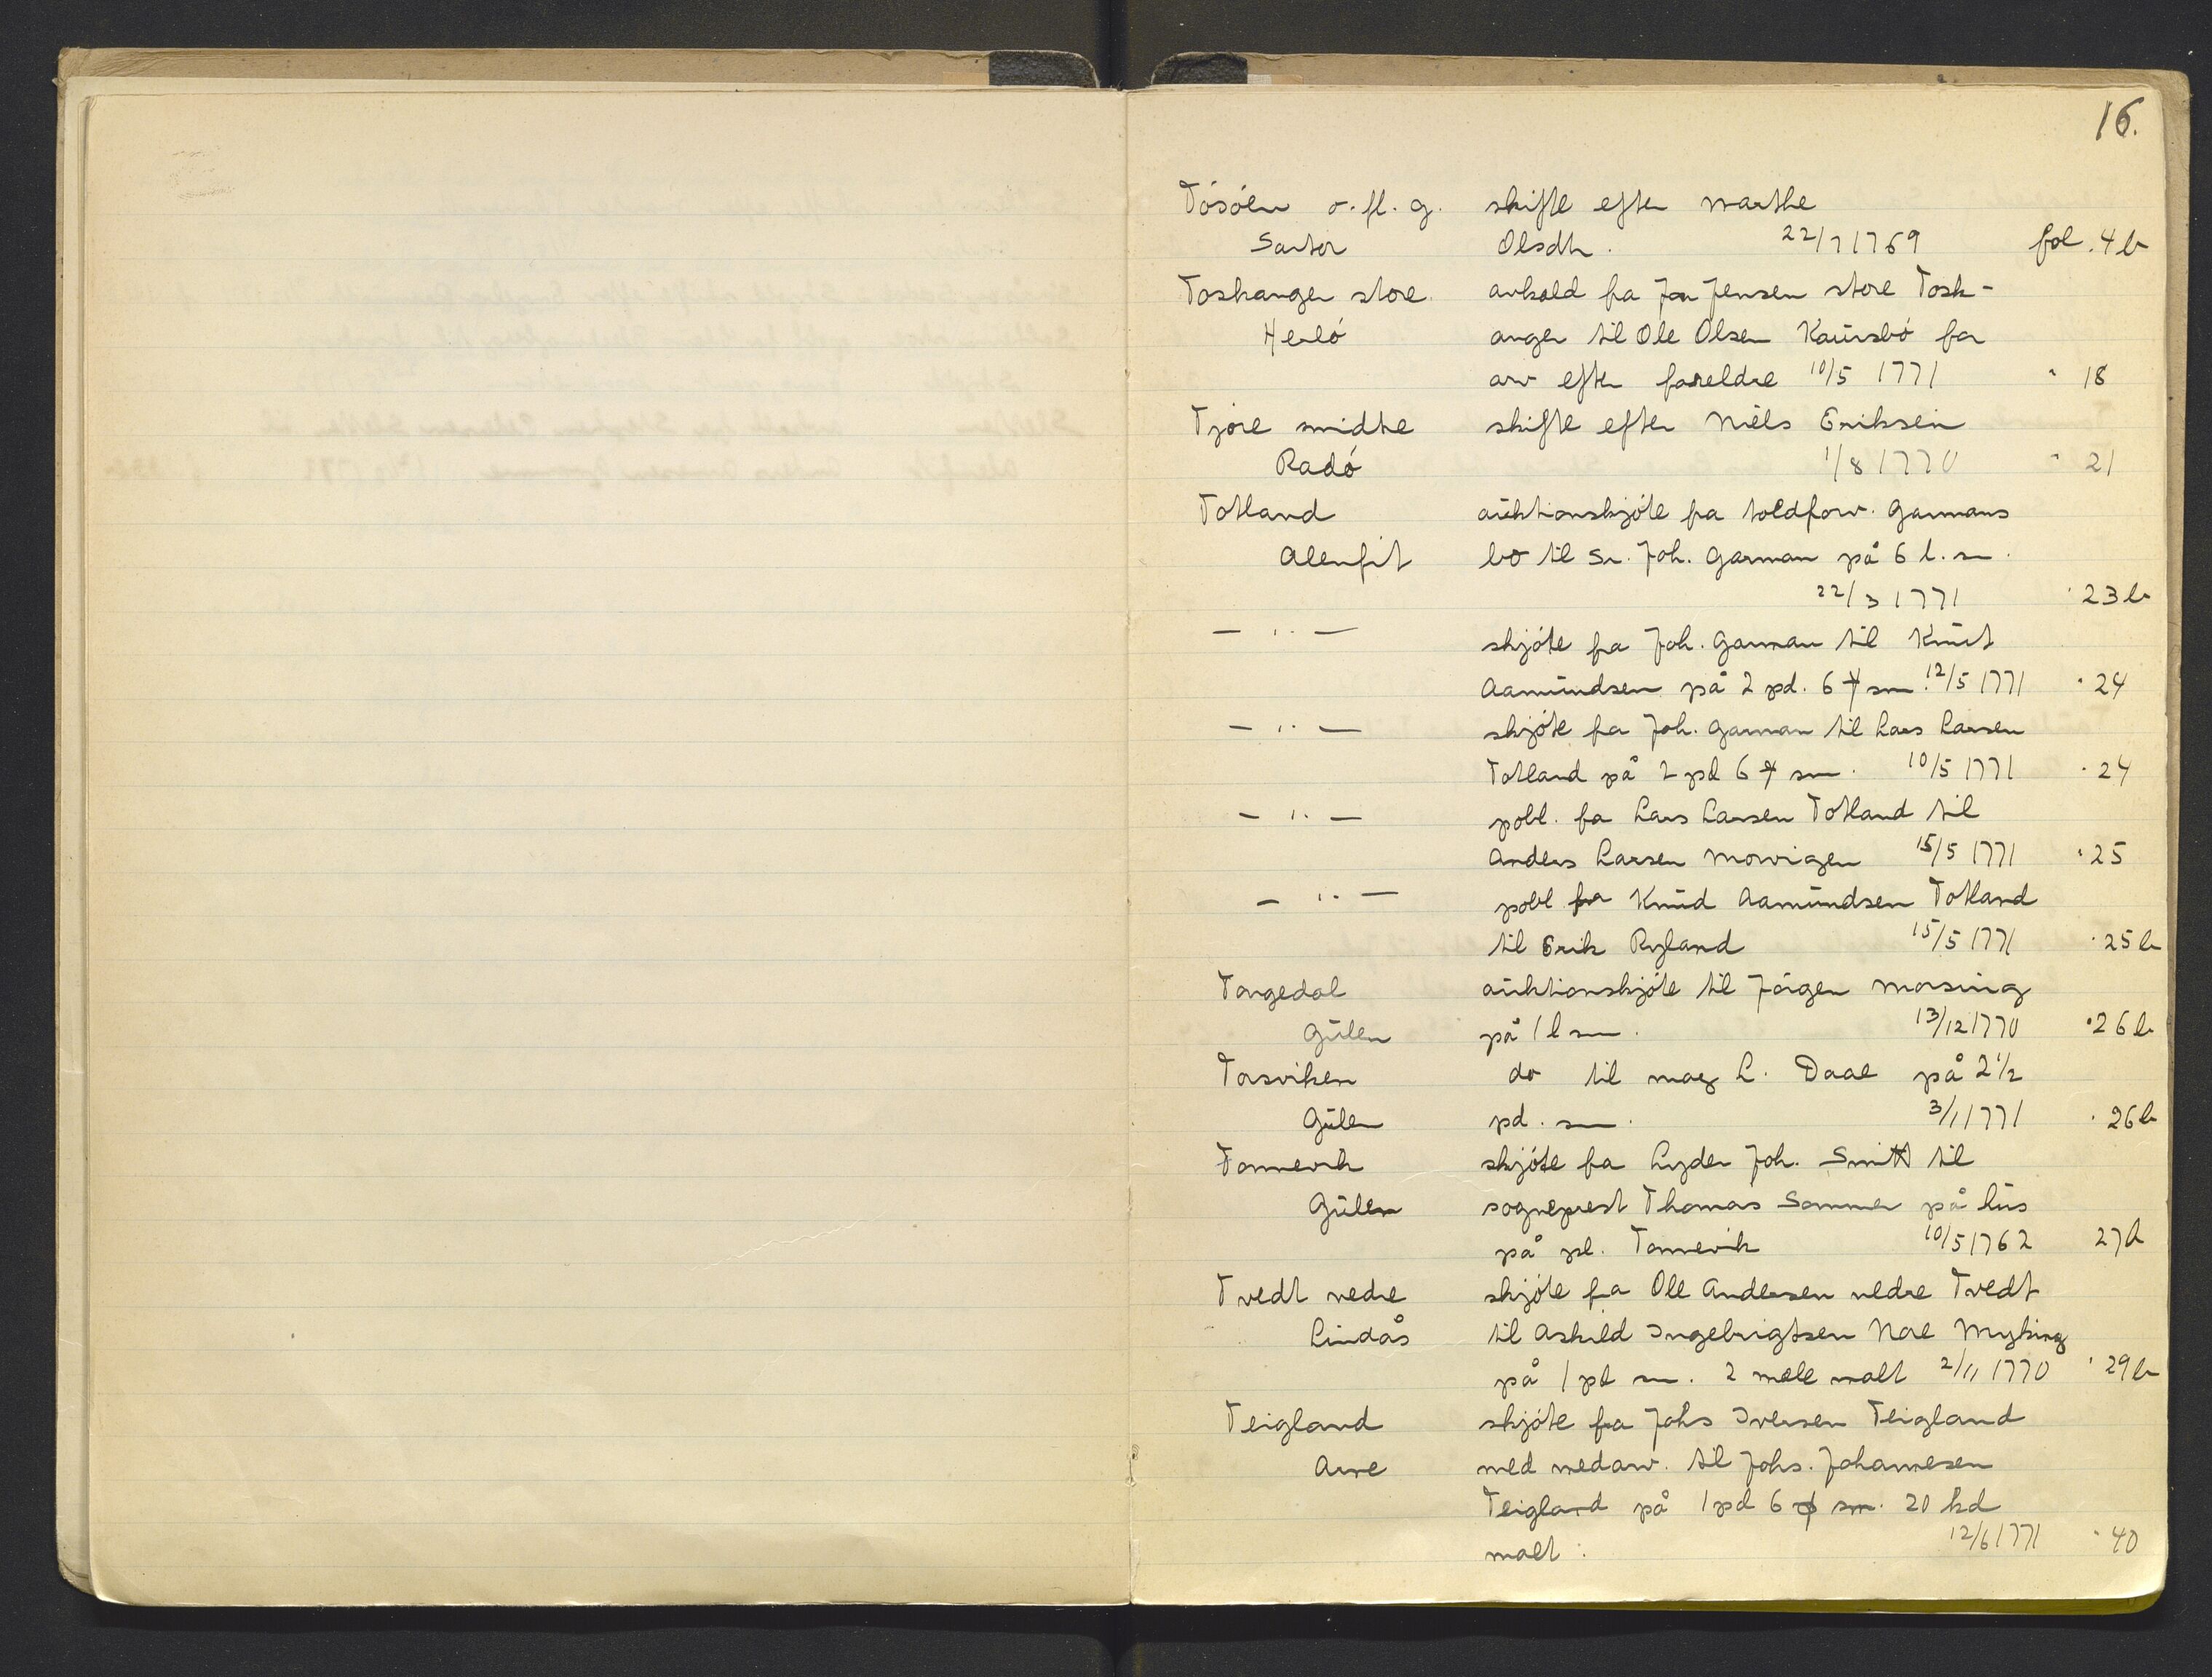 16.
Tösöen o. fl. g. skifte efter Marthe
Sartor Olsdtr. 22/7 1769 fol. 4 b
Toskanger store avkald fra Jon Jensen store Tosk-
Herlö anger til Ole Olsen Kaursbö for
arv efter foreldre 10/5 1771 " 18
Tjore midtre skifte efter Niels Eriksen
Radö 1/8 1770 " 21
Totland auktionskjöte fra toldforv. Garmans
Alenfit bo til Sr. Joh. Garman på 6 l. sm.
22/3 1771 " 23 b
— " — skjöte fra Joh. Garman til Knut
Aamundsen på 2 pd. 6 ₰ sm. 12/5 1771 " 24
— " — skjöte fra Joh. Garman til Lars Larsen
Totland på 2 pd 6 ₰ sm. 10/5 1771 " 24
— " — pobl. fra Lars Larsen Totland til
Anders Larsen Morvigen 15/5 1771 " 25
— " — pobl fra Knud Aamundsen Totland
til Erik Ryland 15/5 1771 " 25 b
Torgedal auktionskjöte til Jörgen Morsing
Gulen på 1 l sm. 13/12 1770 " 26 b
Torsviken do til mag L. Daae på 2 1/2
Gulen pd. sm. 3/1 1771 " 26 b
Tonnevik skjöte fra Lyder Joh. Smitt til
Gulen sogneprest Thomas Sommer på hus
på pl. Tonnevik 10/5 1762 27 b
Tvedt nedre skjöte fra Ole Andersen nedre Tvedt
Lindås til Askild Ingebrigtsen Nore Myking
på 1 pd sm. 2 mele malt 2/11 1770 " 29 b
Teigland skjöte fra Johs Iversen Teigland
Arne med medarv. til Johs. Johannesen
Teigland på 1 pd 6 ₰ sm. 20 kd
malt. 12/6 1771 " 40